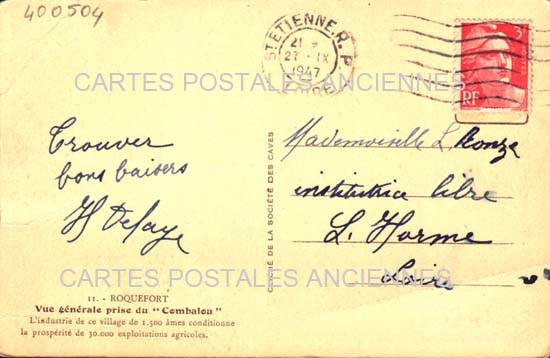 400504
ST ETIENNE R. P.
21
27 - IX
1947
LOIRE
3F
RF
CARTES POSTALES ANCIENNES
Trouver
bons baisers
H Delaye
Mademoiselle L.
institutrice libre
L'Horme
Loire
CLICHÉ DE LA SOCIÉTÉ DES CAVES
CARTES POSTALES ANCIENNES
11. - ROQUEFORT
Vue générale prise du "Combalou"
L'industrie de ce village de 1.500 âmes conditionne
la prospérité de 30.000 exploitations agricoles.